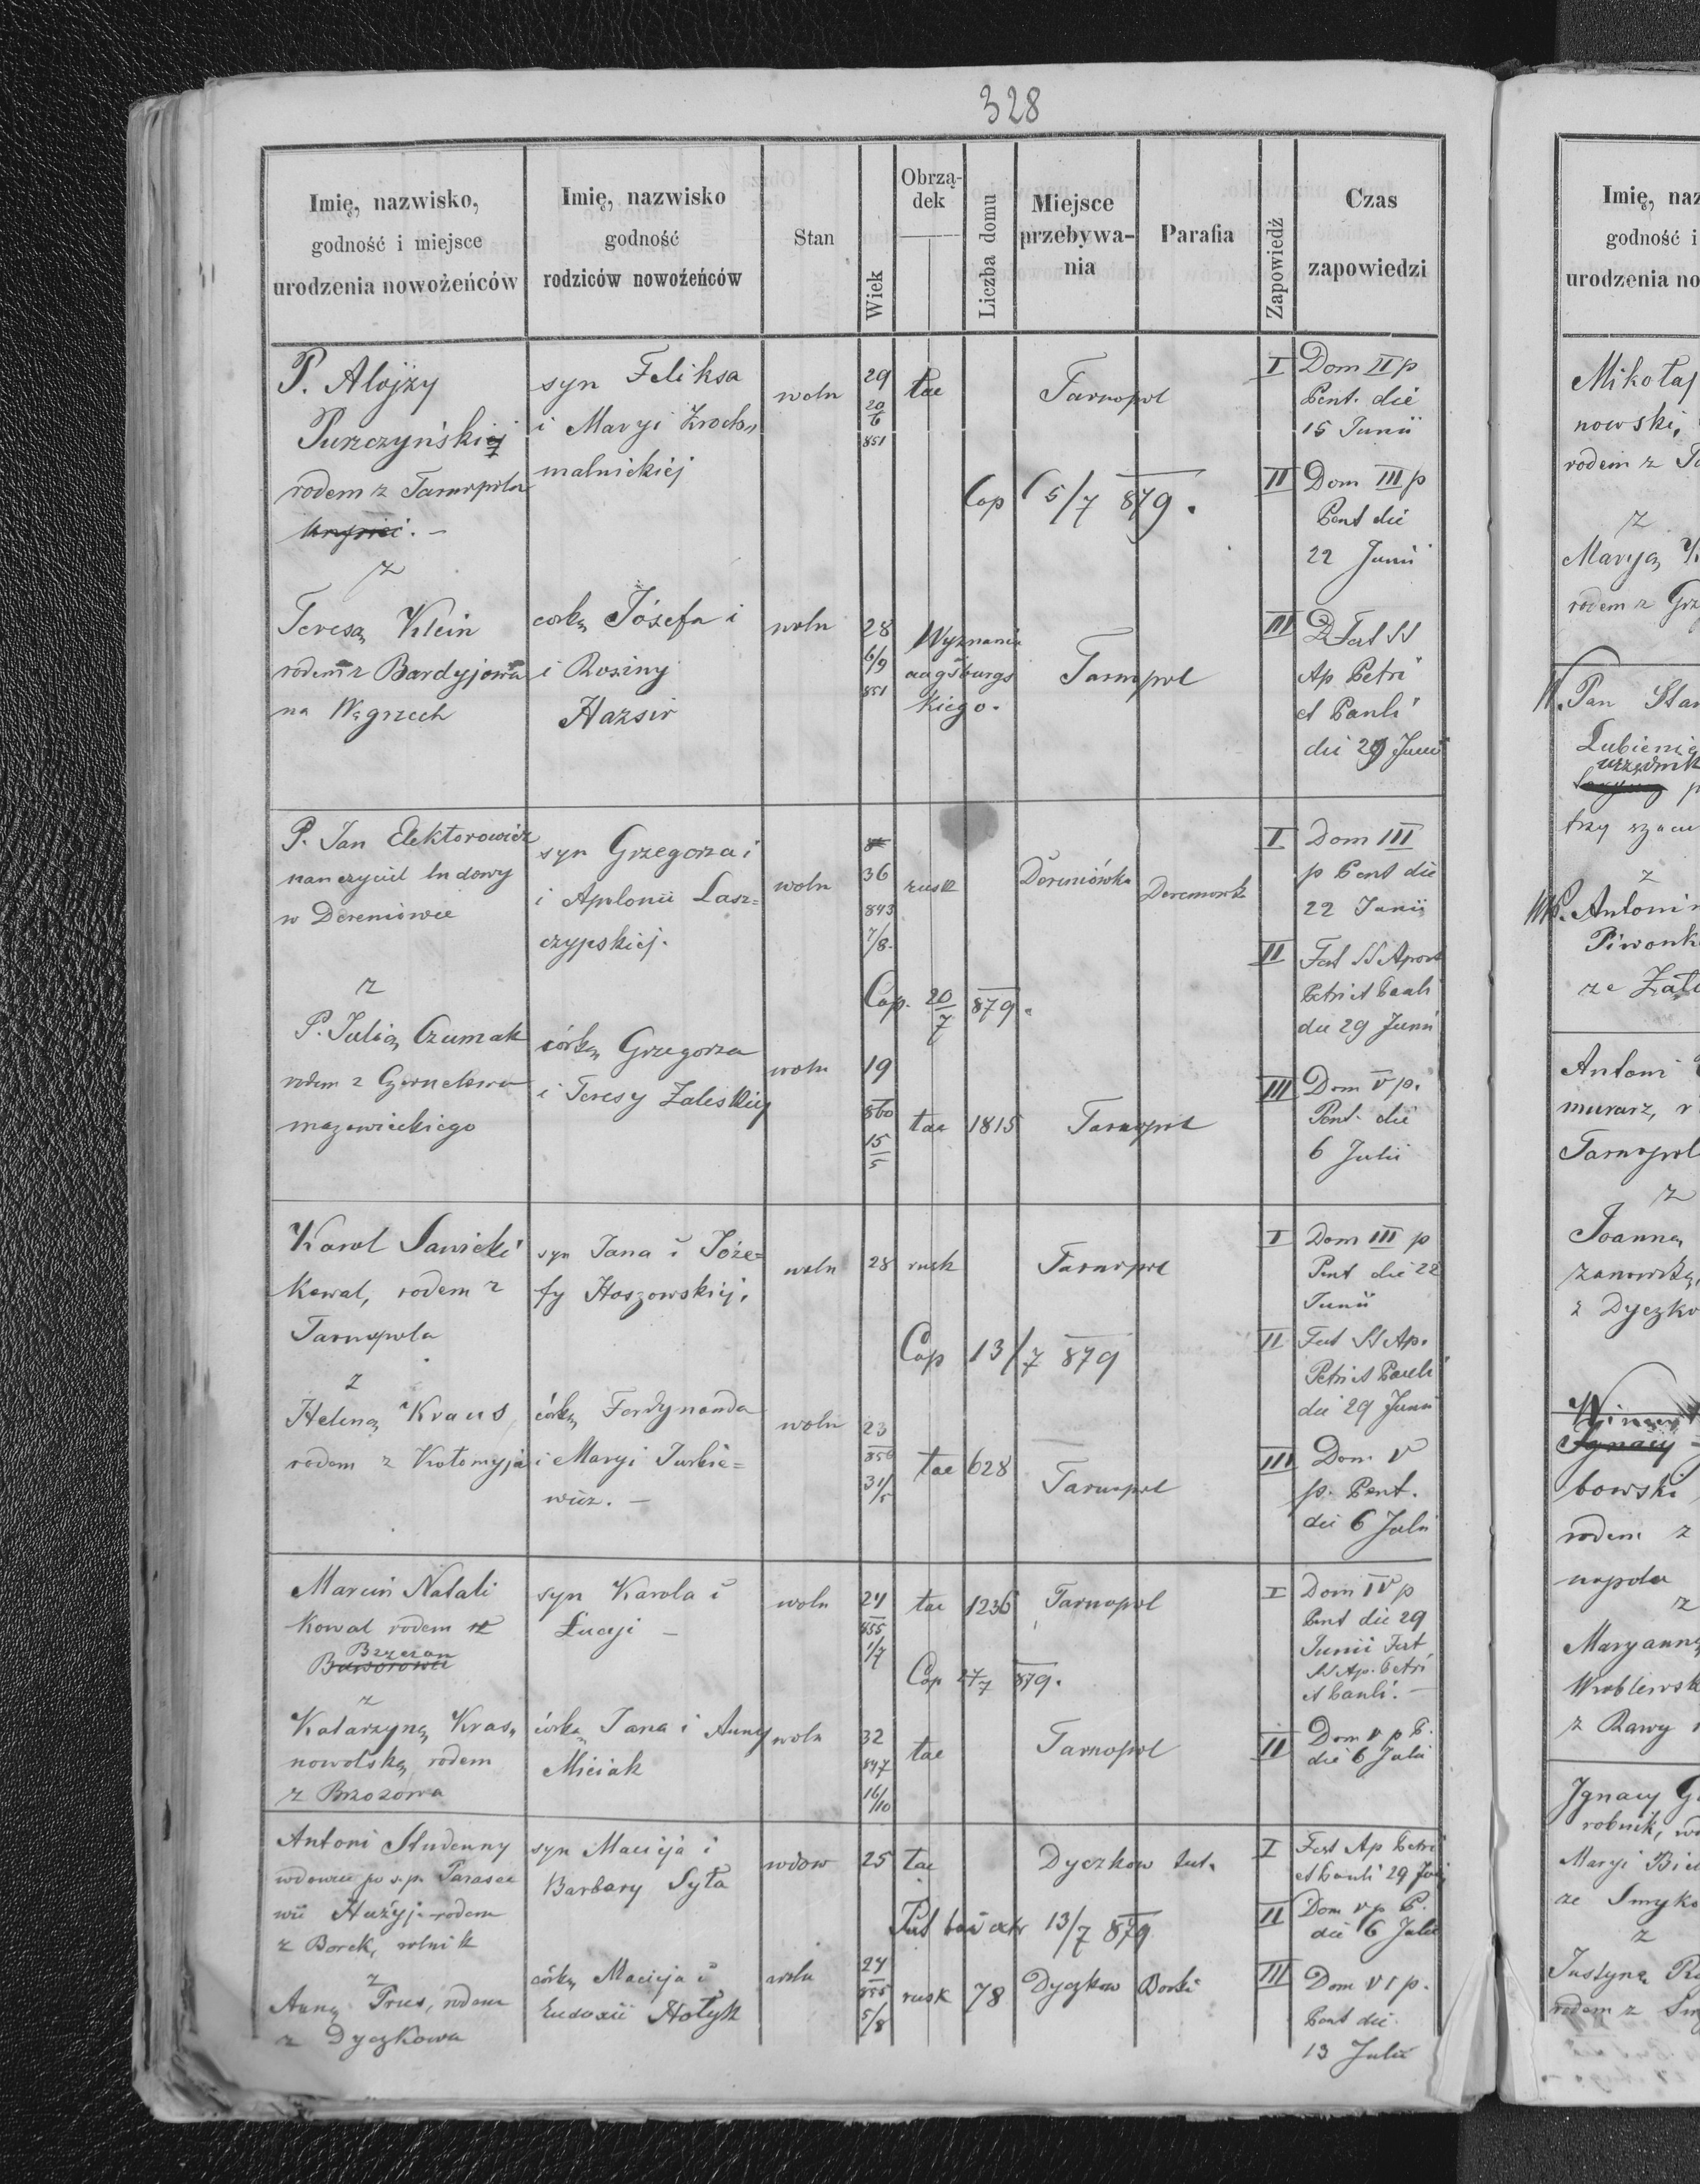 328
Imię, nazwisko,
godność i miejsce
urodzenia nowożeńców
Imię, nazwisko
godność
rodziców nowożeńców
Stan
Wiek
Obrzą-
dek
Liczba domu
Miejsce
przebywa-
nia
Parafia
Zapowiedź
Czas
zapowiedzi
P. Alojzy
rodem z Tarnopola
z
Teresą Klein
rodem z Bardyjowa
na Węgrzech
syn Feliksa
i Maryi Zroch„
malnickiej
córką Józefa i
i Roziny
Hazsir
woln
29
20/6
851
woln
28
6/9
851
łac
Tarnopol
Cop 5/7 879.
Wyznania
augsburgs
kiego.
Tarnopol
I Dom II p
Pent. die
15 Junii
II Dom III p
Pent die
22 Junii
III D Fest SS
Ap Petri
et Pauli
die 29 Junii
P. Jan Elektorowicz
nauczyciel ludowy
w Dereniówce
z
P. Julią Czumak
rodem z
mazowieckiego
syn Grzegorza i
i Apolonii Lasz=
czypskiej.
córką Grzegorza
i Teresy Zaleskiej
woln
36
843
7/8.
rusk
Dereniówka
Cap. 20/7 879.
woln
19
860
15/5
łac 1815 Tarnopol
I Dom III
p Pent die
22 Junii
II Fest SS Apost
Petri et Pauli
die 29 Junii
III Dom V p.
Pent. die
6 Julii
Karol Sawicki
Kowal, rodem z
Tarnopola
z
Heleną Kraus
rodem z Kołomyja
syn Jana i Józe=
fy Hoszowskiej.
córką Ferdynanda
i Maryi Jurkie=
wicz. —
woln 28 rusk Tarnopol
Cop 13/7 879
woln
23
856
31/5
łac 628
Tarnopol
I Dom III p
Pent die 22
Junii
II Fest SS Ap.
Petri et Pauli
die 29 Junii
III Dom V
p. Pent.
die 6 Julii
Marcin Natali
Kowal rodem z
Brzezan
z
Katarzyną Kras„
nowolską rodem
z Brzozowa
syn Karola i
Lucyi —
córką Jana i Anny
Miciak
woln
24
855
1/7
łac 1236 Tarnopol
Cop 27/7 879.
woln
32
847
16/10
łac
Tarnopol
I Dom IV p
Pent die 29
Junii Fest
SS Ap. Petri
et Pauli. —
II Dom V p P.
die 6 Julii
Antoni Studenny
wdowiec po ś.p. Parasce
wii rodem
z Borek, rolnik
z
Anną Prus, rodem
z Dyczkowa
syn Macieja i
Barbary Syta
córką Macieja i
Eudoxii Hołyk
wdow 25 łac Dyczkow tut.
13/7 879
woln
24
855
5/8
rusk 78 Dyczkow Borki
I Fest Ap Petri
et Pauli 29 Junii
II Dom V p P.
die 6 Julii
III Dom VI p.
Pent die
13 Julii
Imię, naz
godność i
urodzenia no
Mikołaj
nowski,
rodem z
z
Maryą
rodem z
Pan
Lubienie
urzędnik
z
P. Antoni
Piwonk
Antoni
murarz,
Tarnopol
z
Joanną
z Dyczko
bowski
rodem z
z
Maryanną
Wróblewsk
z Rawy
Ignacy
robnik,
Maryi
ze Smyko
z
Justyną
rodem z